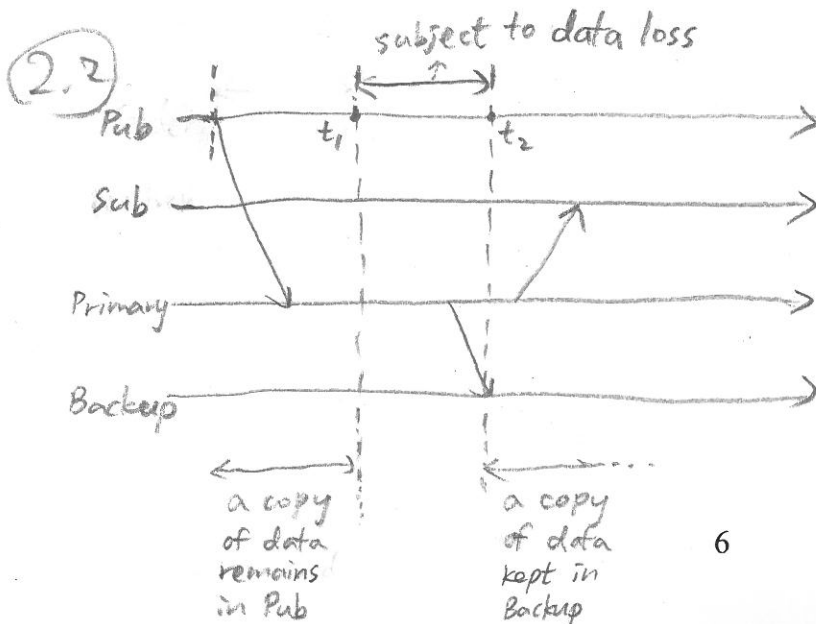 subject to data loss
2.2
Pub
t1
t2
Sub
Primary
Backup
a copy
of data
remains
in Pub
a copy
of data
kept in
Backup
6